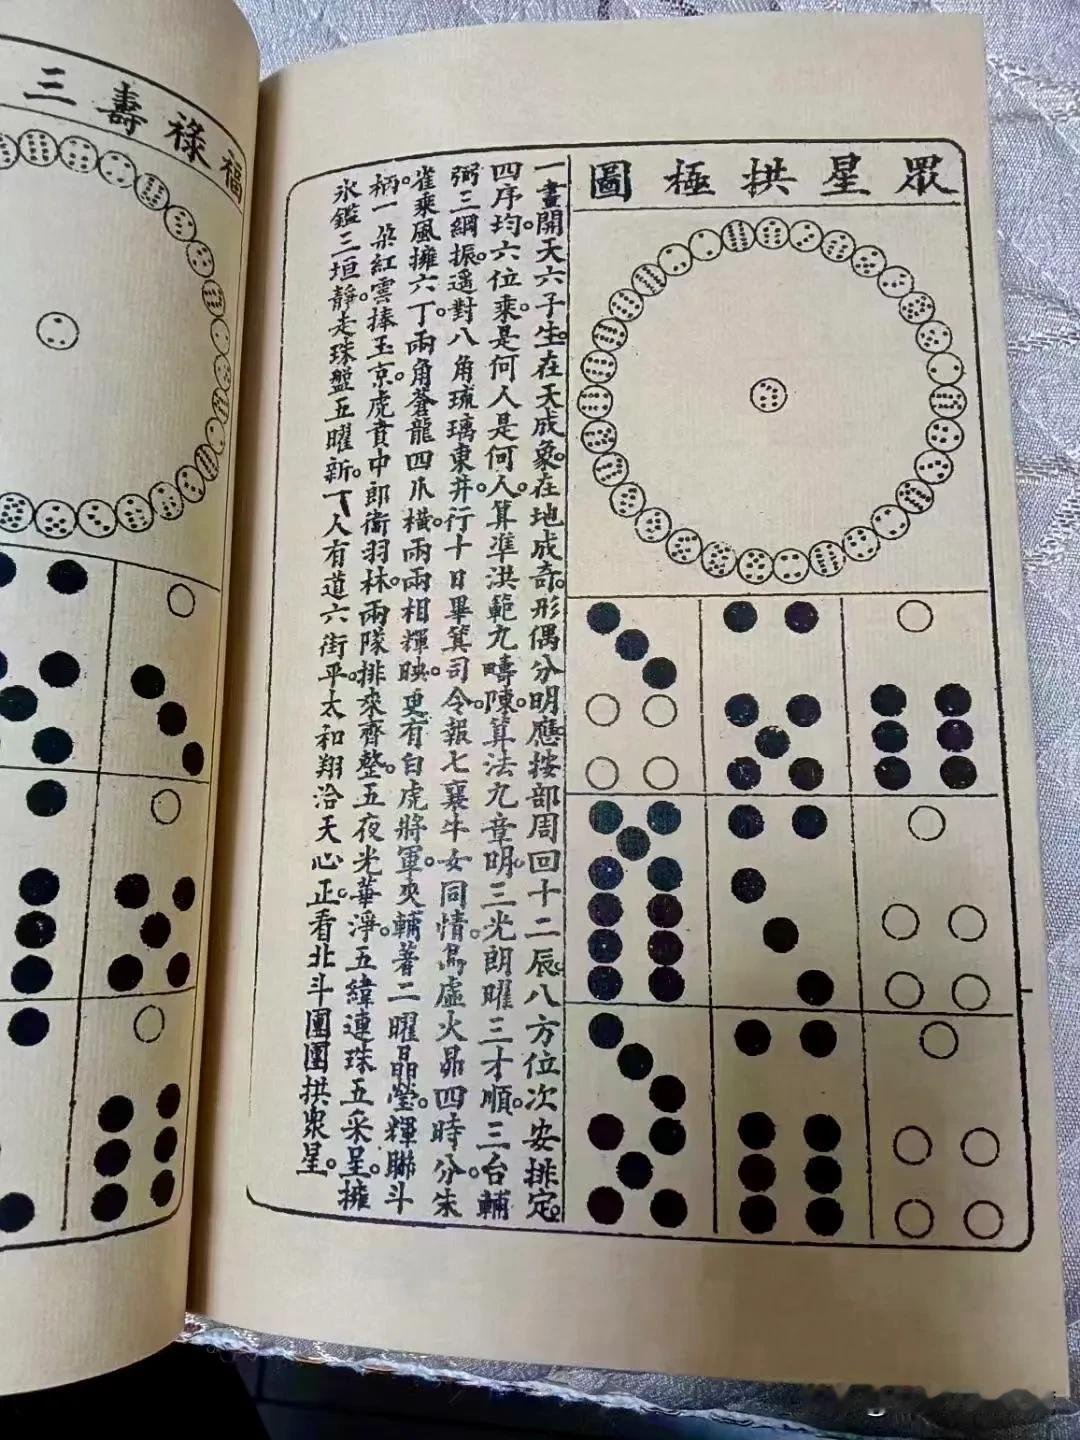 眾星拱極圖
一畫開天六子生。在天成象。在地成奇。形偶分明。應按部周回十二辰。八方位次安排定。
四序均。六位乘。是何人是何人。算準洪範九疇陳。算法九章明。三光朗曜三才順。三台輔
弼三綱振。遥對八角琉璃東井。行十日畢箕司令。報七襄牛女同情。爲虛火昴四時分。朱
雀乘風擁六丁。兩角蒼龍四爪橫。兩兩相輝映。更有白虎將軍。夾輔著二曜晶瑩。輝聯斗
柄一朶紅雲捧玉京。虎賁中郎衞羽林。兩隊排來齊整。五夜光華淨。五緯連珠五采呈。擁
氷鑑三垣靜。走珠盤五曜新。一人有道六街平。太和翔洽天心正。看北斗團團拱衆星。
福祿壽三